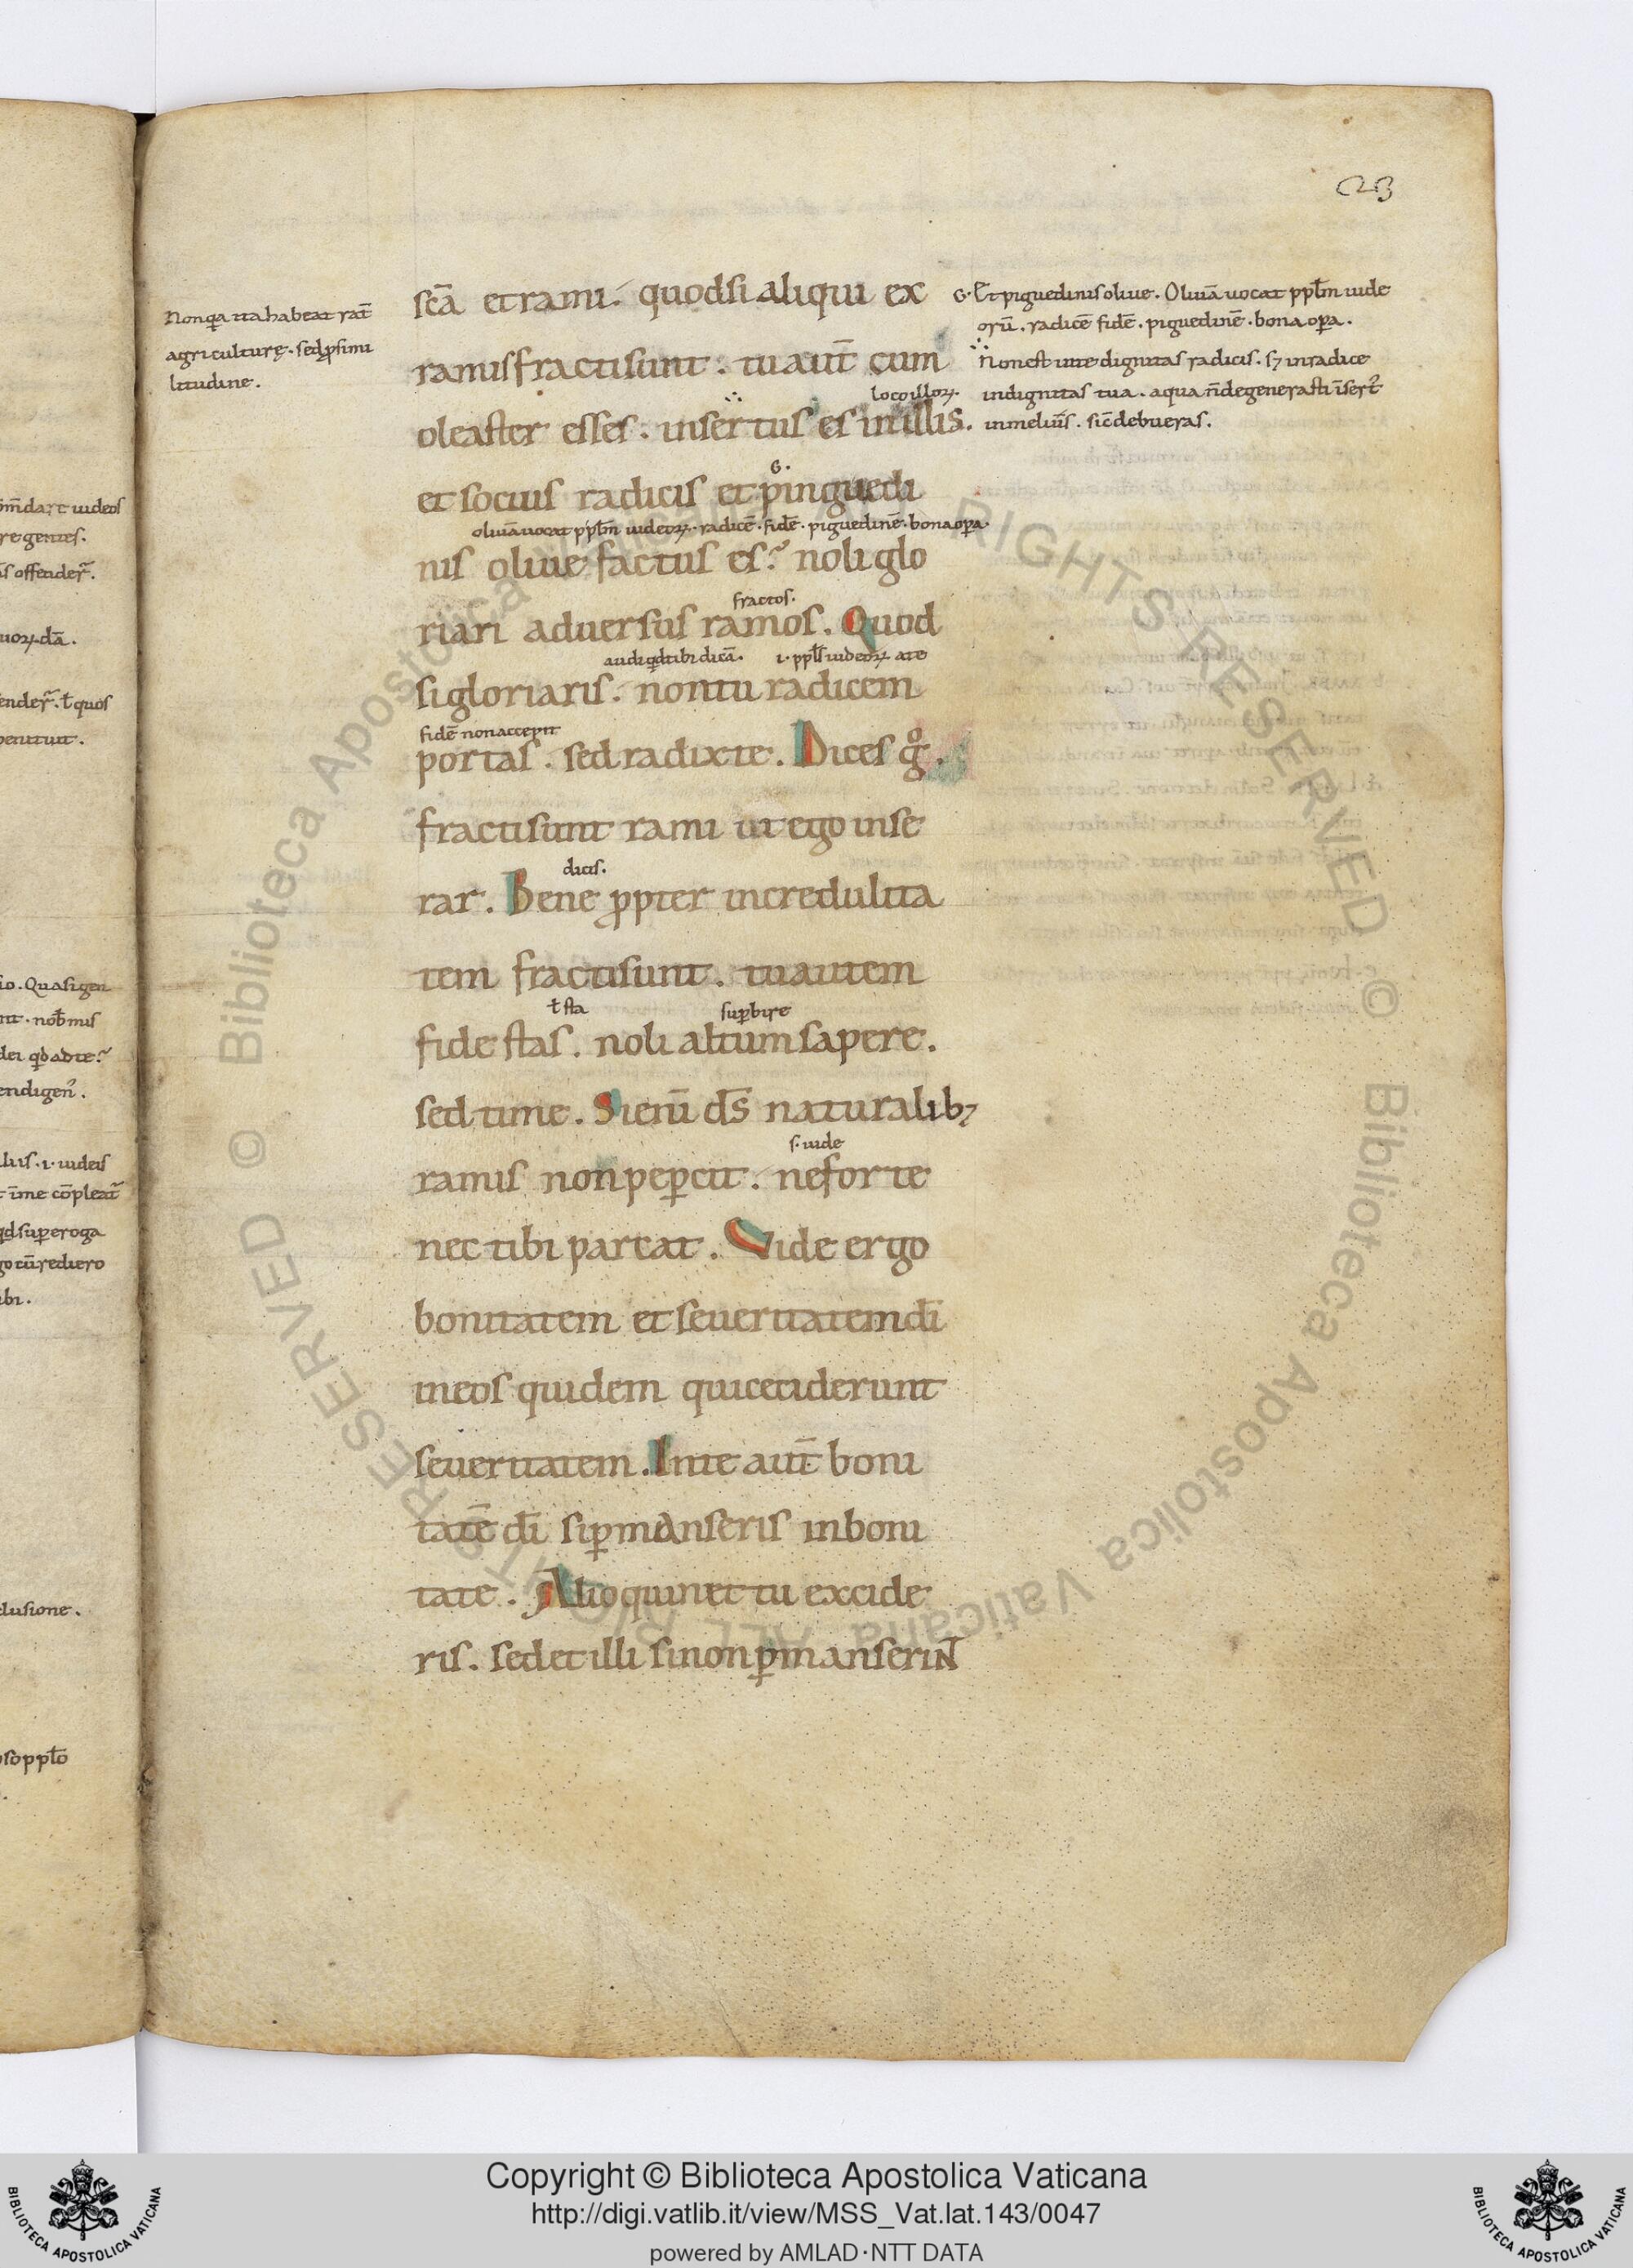 scā et rami. quodsi aliqui ex
ramis fracti sunt. tu aut̄ cum
loco illoꝝ.
oleaster esses. insertus es in illis.
G.
et socius radicis et pinguedi
oliuā uocat pp̄lm iudeoꝝ. radicē. fidē. piguedinē. bona oꝑa.
nis oliue factus es? noli glo
fractos.
riari aduersus ramos. Quod
audi qd tibi dicā. .i. pp̄ls iudeoꝝ a te
si gloriaris. non tu radicem
fidē non accepit
portas. sed radix te. Dices gͦ.
fracti sunt rami ut ego inse
dicis.
rar. Bene ꝓpter incredulita
tem fracti sunt. tu autem
ł sta suꝑbire
fide stas. noli altum sapere.
sed time. Si enī ds̄ naturalibꝫ
s. uide
ramis non peꝑcit. ne forte
nec tibi parcat. Vide ergo
bonitatem et seueritatem dī
in eos quidem qui ceciderunt
seueritatem. In te aut̄ boni
tatē dī si ꝑmanseris in boni
tate. Alioquin et tu excide
ris. sed et illi si non ꝑmanserin̄t
Non qa ita habeat rat̄
agriculturę. sed ꝓ simi
litudine.
G. Et piguedinis oliue. Oliuā uocat pp̄lm iude
orū. radicē fidē. piguedinē. bona oꝑa.
Non est in te dignitas radicis. sꝫ in radice
indignitas tua. a qua n̄ degenerasti īsert᷒
in meli᷒. sic̄ debueras.
Copyright © Biblioteca Apostolica Vaticana
http://digi.vatlib.it/view/MSS_Vat.lat.143/0047
powered by AMLAD·NTT DATA
BIBLIOTECA APOSTOLICA VATICANA
BIBLIOTECA APOSTOLICA VATICANA
© Biblioteca Apostolica Vaticana ALL RIGHTS RESERVED
© Biblioteca Apostolica Vaticana ALL RIGHTS RESERVED